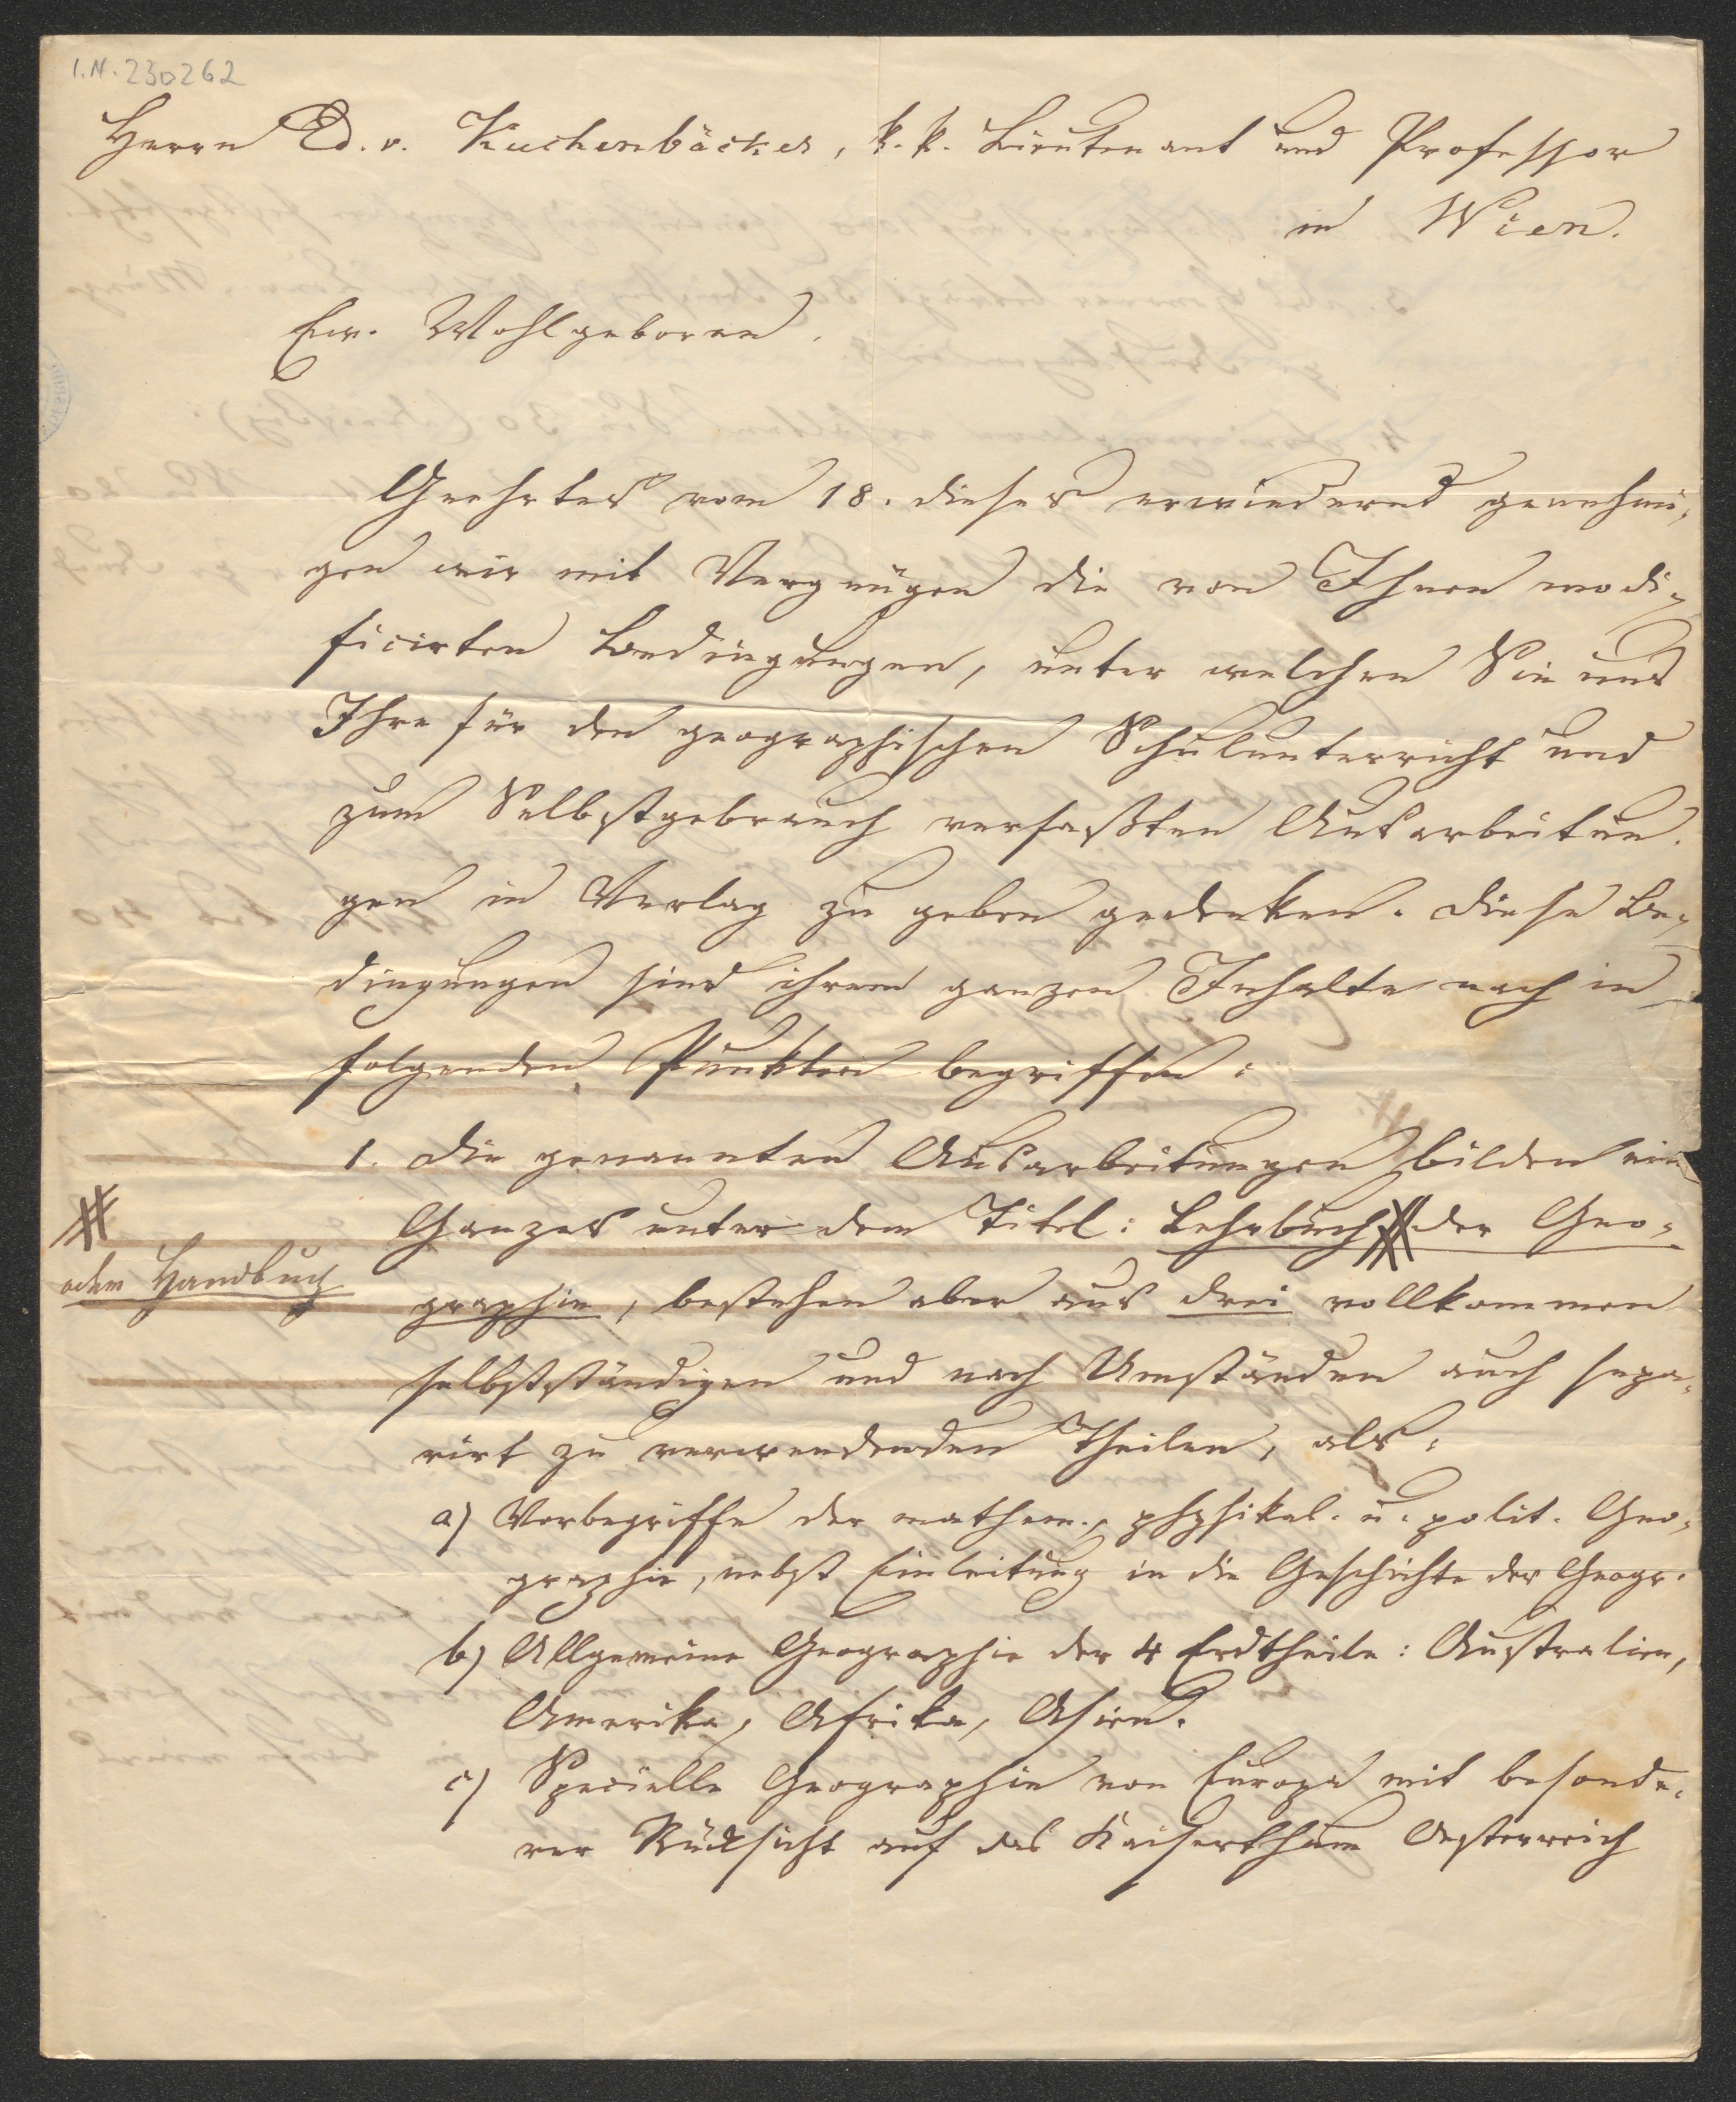 I.N. 230262
Herrn Ed. v. Kuchenbäcker, k. k. Lieutenant und Professor
in Wien.
Ew. Wohlgeboren.
Geehrtes vom 18. dieses erwiedernd genehmi-
gen wir mit Vergnügen die von Ihnen modi-
ficirten Bedingungen, unter welchen Sie uns
Ihre für den geographischen Schulunterricht und
zum Selbstgebrauch verfaßten Ausarbeitun-
gen in Verlag zu geben gedenken. Diese Be-
dingungen sind ihrem ganzen Inhalte nach in
folgenden Punkten begriffen:
1. Die genannten Ausarbeitungen bilden ein
Ganzes unter dem Titel: Lehrbuch # der Geo-
#
oder Handbuch
graphie, bestehen aber aus drei vollkommen
selbstständigen und nach Umständen auch sepa-
rirt zu verwendenden Theilen, als:
a) Vorbegriffe der mathem., physikal. u. polit. Geo-
graphie, nebst Einleitung in die Geschichte der Geogr.
b) Allgemeine Geographie der 4 Erdtheile: Australien,
Amerika, Afrika, Asien.
c) Specielle Geographie von Europa mit besonde-
rer Rücksicht auf das Kaiserthum Oesterreich